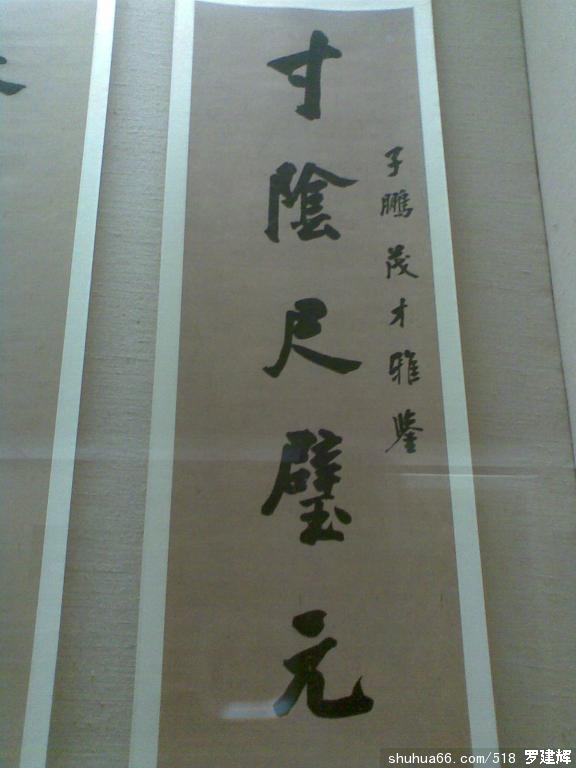 子鵬茂才雅鑒
寸陰尺璧元
shuhua66.com/518 罗建辉